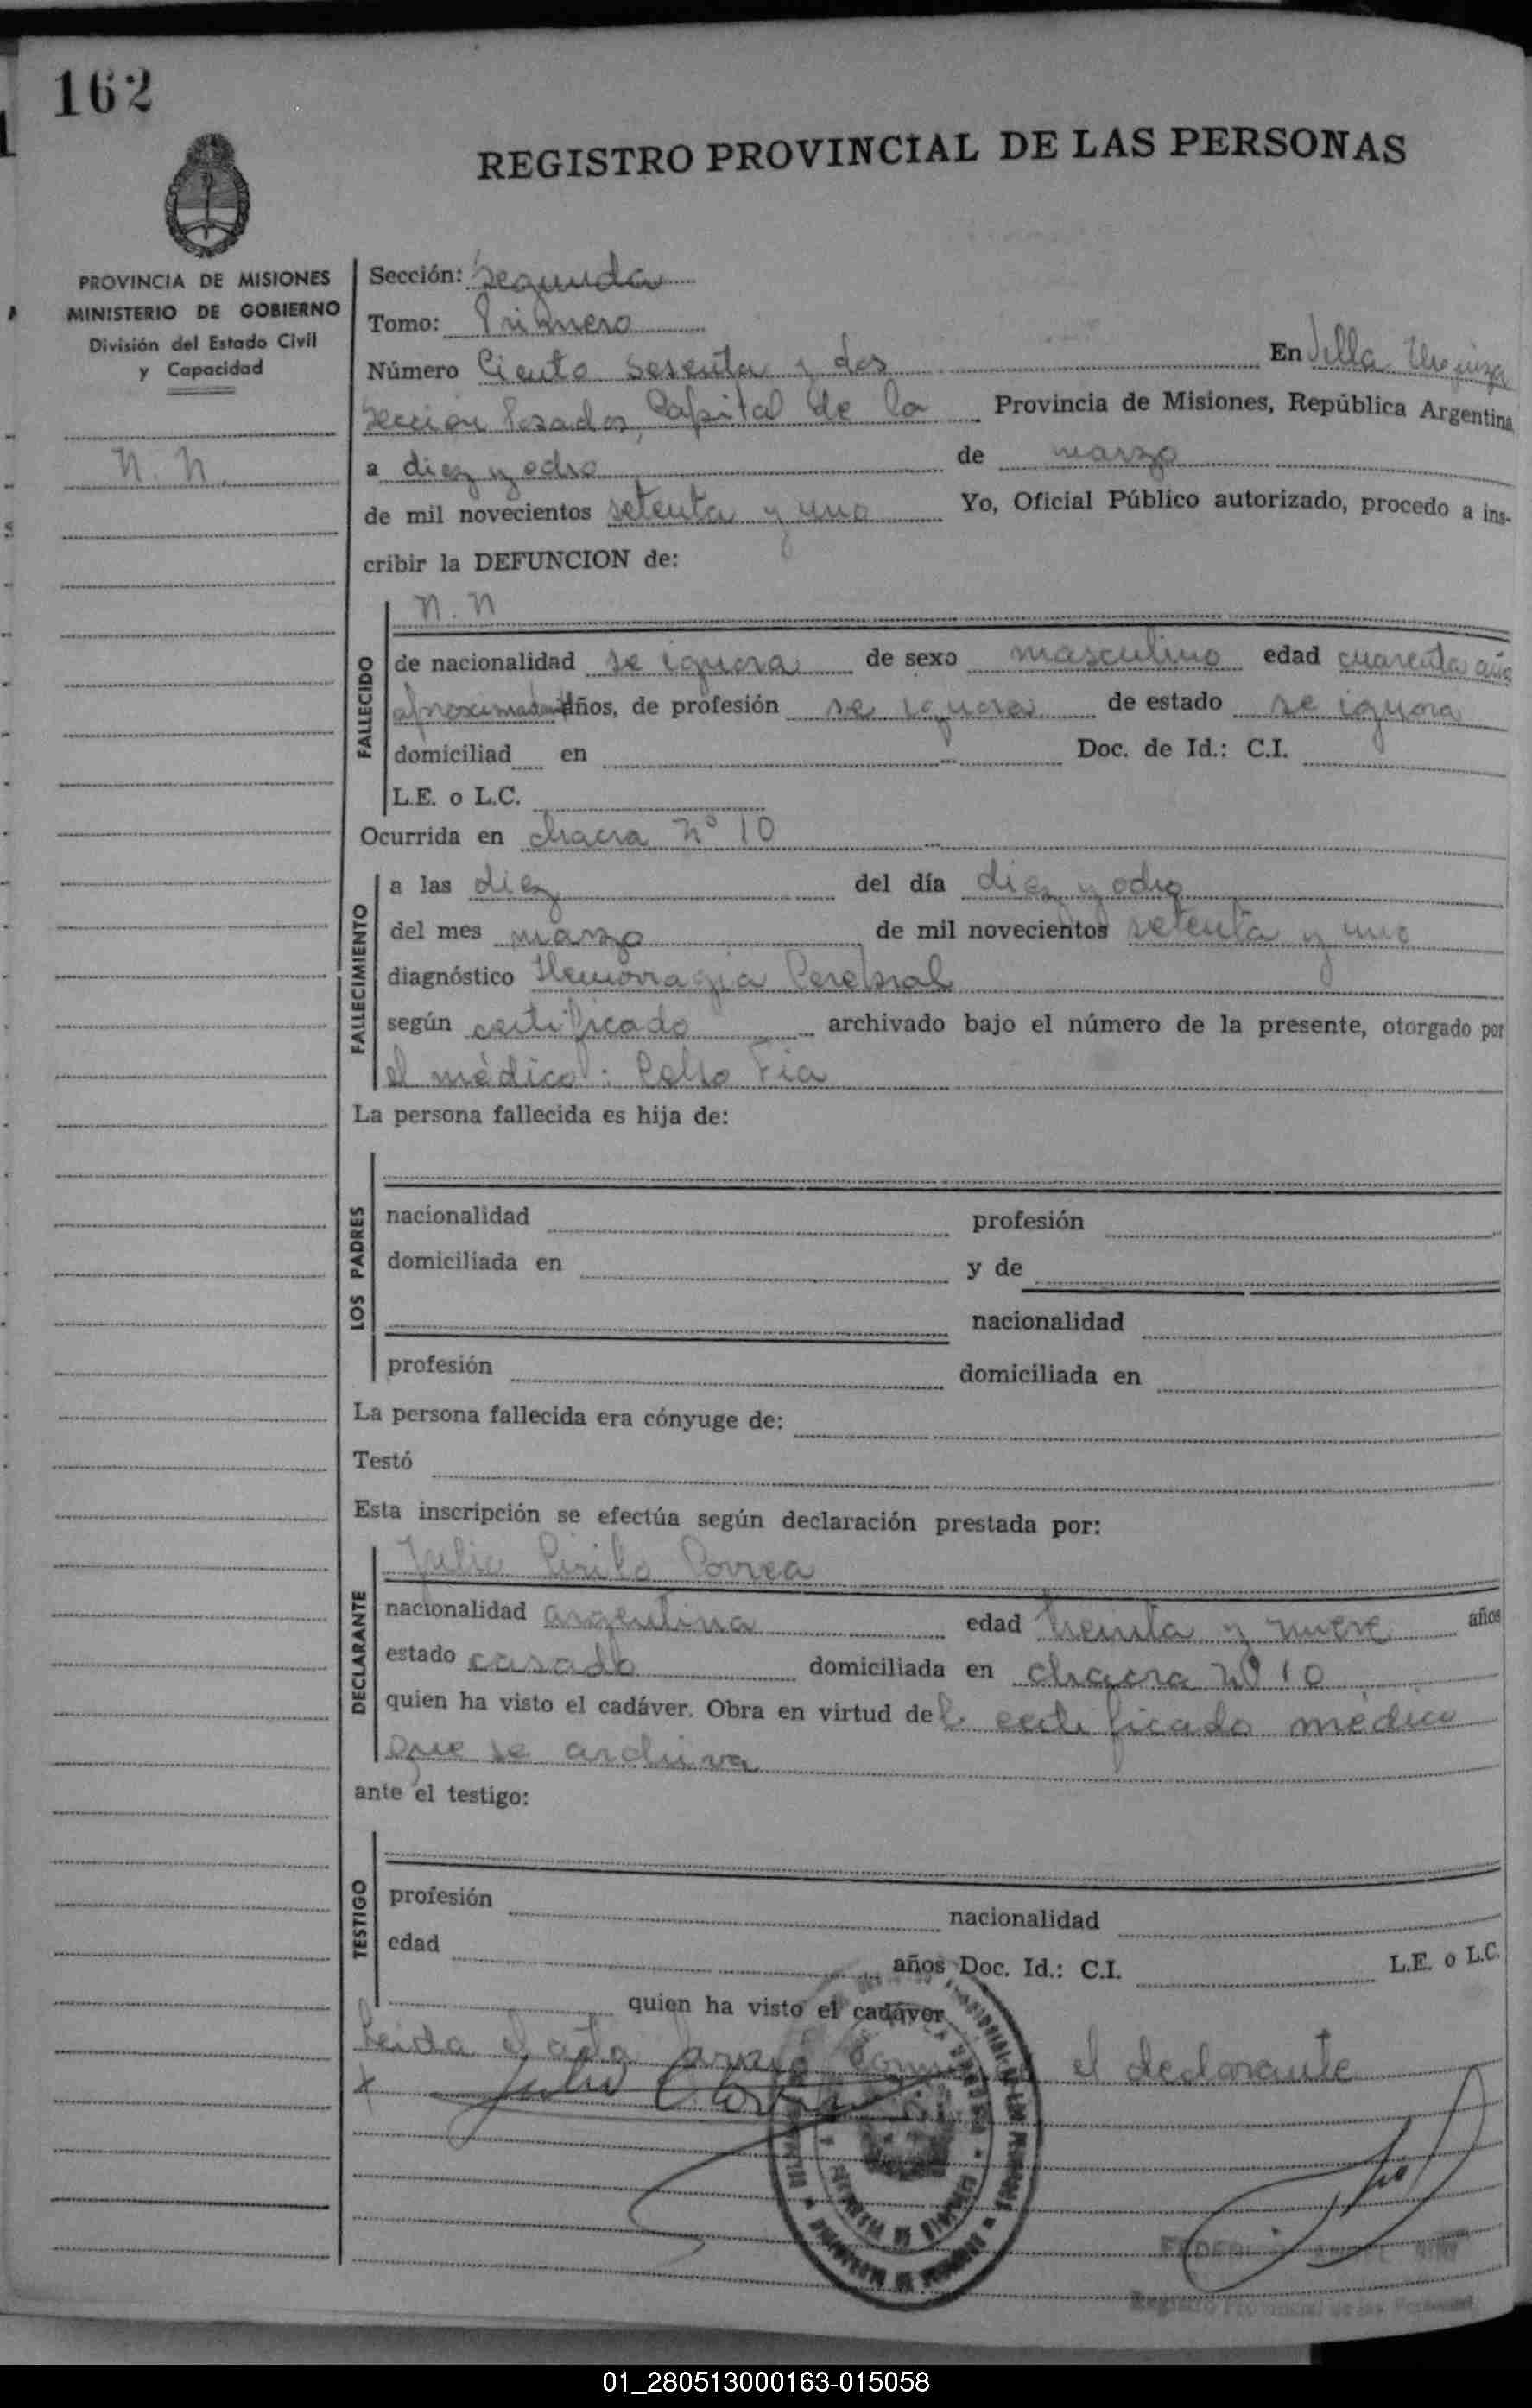 162
REGISTRO PROVINCIAL DE LAS PERSONAS
PROVINCIA DE MISIONES
MINISTERIO DE GOBIERNO
División del Estado Civil
y Capacidad
N. N.
Sección: Segunda
Tomo: Primero
Número Ciento sesenta y dos En Villa Urquiza
Sección Posadas, Capital de la Provincia de Misiones, República Argentina
a diez y ocho de marzo
de mil novecientos setenta y uno Yo, Oficial Público autorizado, procedo a ins-
cribir la DEFUNCION de:
N. N
FALLECIDO
de nacionalidad se ignora de sexo masculino edad cuarenta
años, de profesión se ignora de estado se ignora
domiciliad en Doc. de Id.: C.I.
L.E. o L.C.
Ocurrida en chacra Nº 10
FALLECIMIENTO
a las diez del día diez y ocho
del mes marzo de mil novecientos setenta y uno
diagnóstico Hemorragia Cerebral
según certificado archivado bajo el número de la presente, otorgado por
el médico: Celso
La persona fallecida es hija de:
LOS PADRES
nacionalidad profesión
domiciliada en y de
nacionalidad
profesión domiciliada en
La persona fallecida era cónyuge de:
Testó
Esta inscripción se efectúa según declaración prestada por:
DECLARANTE
Julio Cirilo Correa
nacionalidad argentina edad treinta y nueve años
estado casado domiciliada en chacra Nº 10
quien ha visto el cadáver. Obra en virtud del certificado médico
que se archiva
ante el testigo:
TESTIGO
profesión nacionalidad
edad años Doc. Id.: C.I. L.E. o L.C.
quien ha visto el cadáver
Leida el acta el declarante
x Julio C.
Registro Provincial de las Personas
01_280513000163-015058